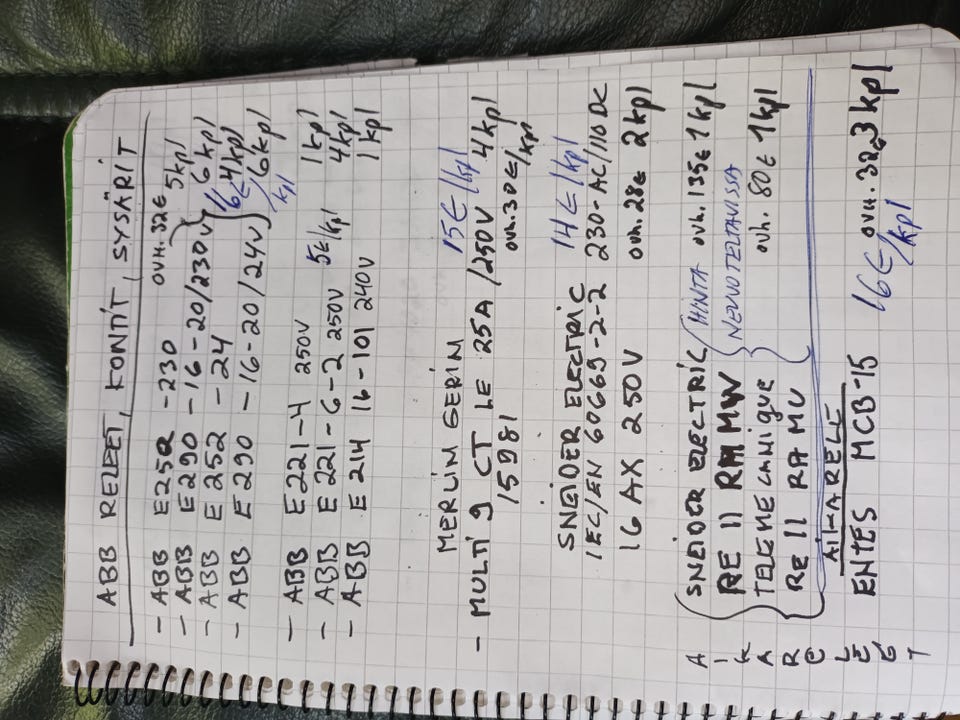 ABB RELEET, KONTIT, SYSÄRIT
- ABB E252 -230 OVH. 32€ 5kpl
- ABB E290 -16-20/230V 6kpl
- ABB E252 -24 4kpl
- ABB E290 -16-20/24V 6kpl
16€/kpl
- ABB E221-4 250V 1kpl
- ABB E221-6-2 250V 5€/kpl 4kpl
- ABB E214 16-101 240V 1kpl
MERLIN GERIN 15€/kpl
- MULTI 9 CT LE 25A/250V 4kpl
15981 ovh. 30€/kpl
SNEIDER ELECTRIC 14€/kpl
IEC/EN 60669-2-2 230-AC/110 DC
16 AX 250V ovh. 28€ 2kpl
AIKARELEET
SNEIDER ELECTRIC HINTA ovh. 135€ 1kpl
RE 11 RMMW NEUVOTELTAVISSA
TELEMECANIQUE ovh. 80€ 1kpl
RE 11 RAMU
AIKARELE
ENTES MCB-15 ovh. 32€ 3kpl
16€/kpl